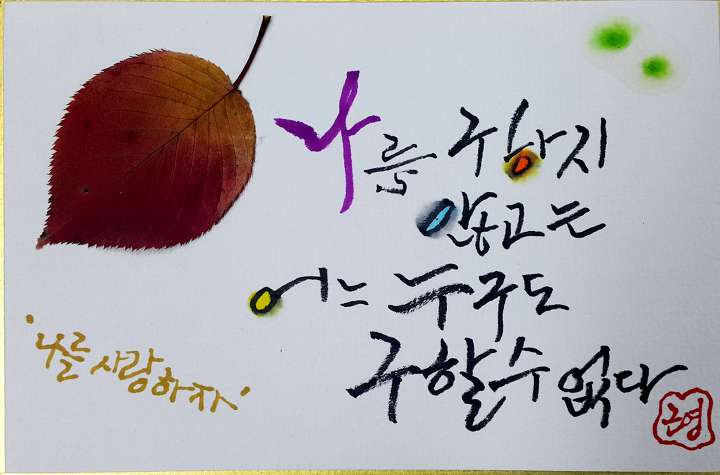 나를 구하지
않고는
어느 누구도
구할수 없다
'나를 사랑하자'
근영